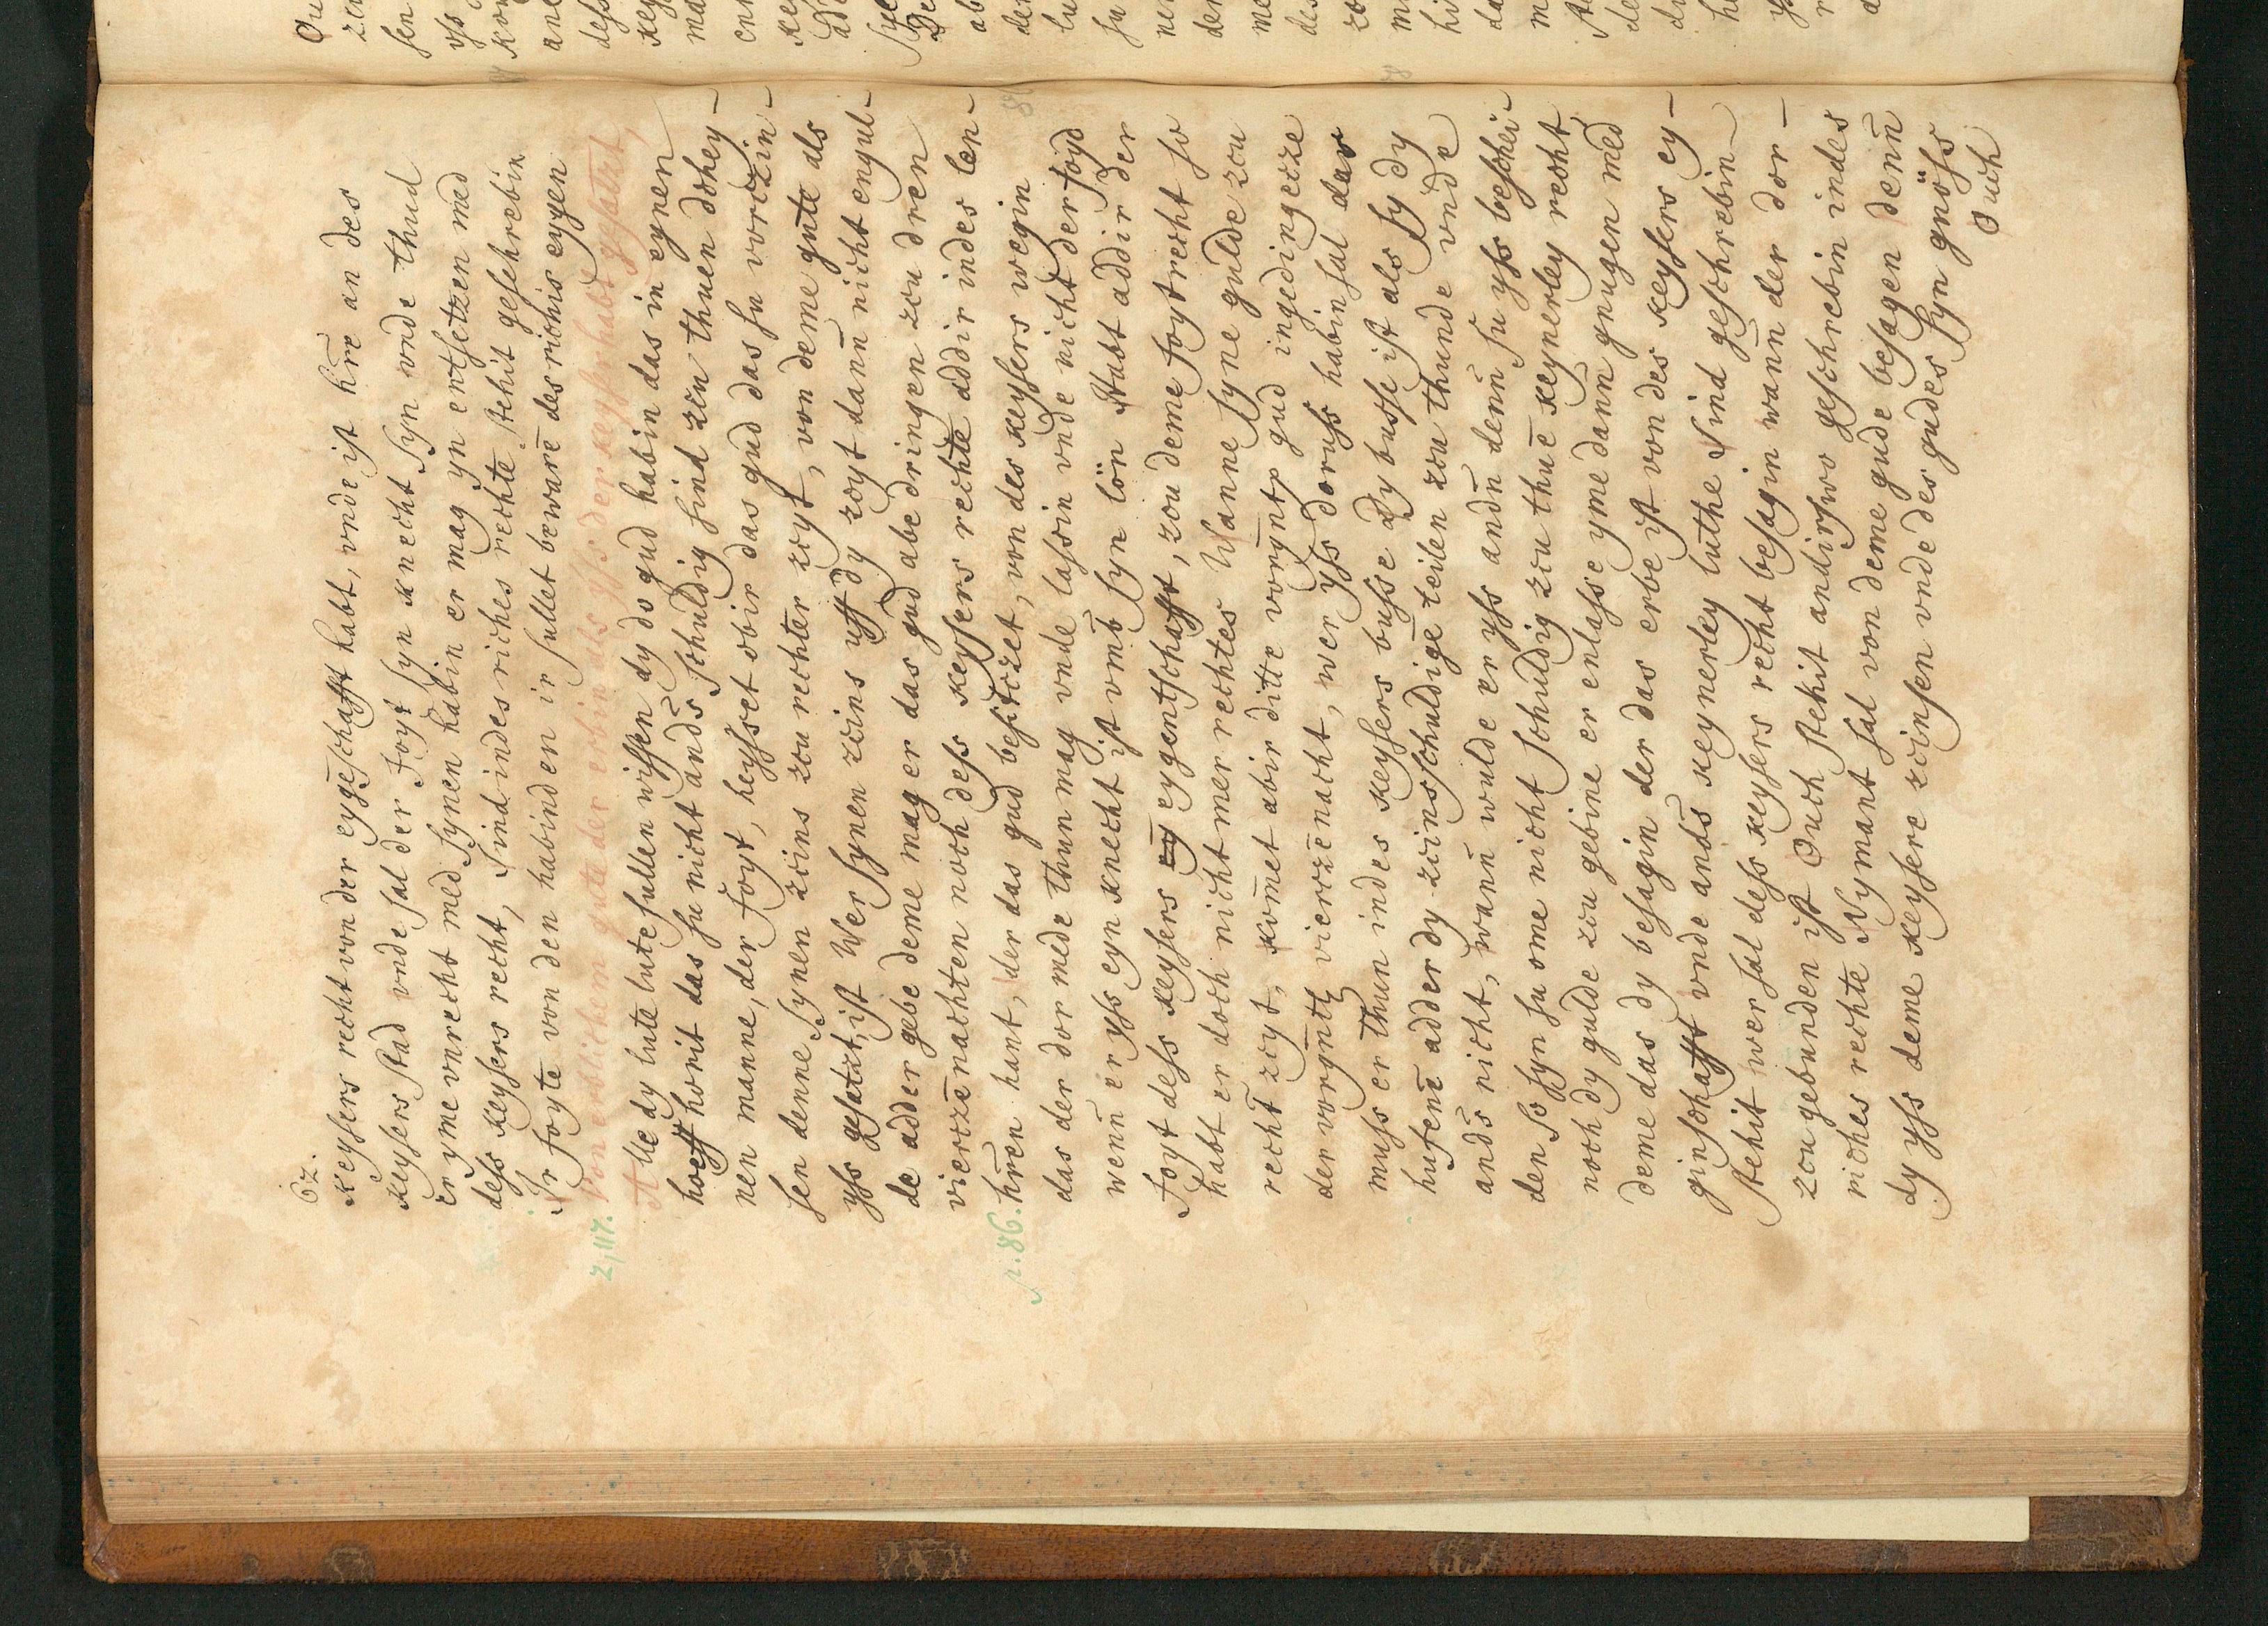 62.
keysers recht von der eygēschafft habt, vnde ist hr̄re an des
keysers stad vnde sal der foyt syn knecht syn vnde thud
er yme vnrecht med synen habin er mag yn entsetzen med
dess keysers recht, sind in des riches rechte stehit geschrebin
Ir foyte von den habinden ir sullet beware des richis eygen
Von erblichem gute der erbin als yss der keyser habt gesatzt
Alle dy lute lute sullen wissen dy do gud habin das in eynen
hoeff horit das su nicht ands̄ schuldig sind zcu thuen dchey-
nen manne, der foyt, heysset obir das gud das su vorczin-
sen denne synen zcins zcu rechter zcyt, von deme gute als
yss gesatzt ist Wer synen zcins uff dy zcyt dann̄ nicht engul-
de adder gebe deme mag er das gud abe dringen zcu dren
viertzēnachten noch dess keysers rechte addir in des len-
hr̄en hant, der das gud besitzet, von des keysers wegin
das der dor mede thun mag vnde lassin vnde nicht der foyd
wenn̄ er yss eyn knecht ist vmb̄ syn lōn Habt addir der
foyt dess keysers ey eygentschafft, zcu deme foytrecht so
habt er doch nicht mer rechtes Wanne syne gulde zcu
recht̄ zcyt, kom̄et abir ditte vorgn̄t gud in gedingetze
der vorgn̄tt̄ viertzēnacht, wer yss doruss habin sal der
muss er thun in des keysers busse Dy busse ist als sy dy
husenē adder dy zcinsschuldigē teilen zcu thunde vnde
ands̄ nicht, wann̄ wulde er yss andn̄ denn̄ su yss beschei-
den So syn su ome nicht schuldig zcu thuē keynerley recht
noch dy gulde zcu gebine er enlasse yme dann̄ gnugen med
deme das dy besagin der das erbe ist von des keysers ey-
ginschafft vnde ands̄ keynerley luthe Sind geschrebin
stehit wer sal dess keysers recht besagin wann̄ der dor-
zcu gebunden ist Ouch stehit andirswo geschrebin in des
riches rechte Nymant sal von deme gude besagen denn̄
dy yss deme keysere zcinsen vnde des gudes syn gnōss
Ouch
2, 117.
p. 86.